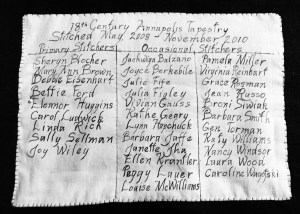 18th Century Annapolis Tapestry
Stitched May, 2008 - November 2010
Primary Stitchers
Sheryn Blocher
Mary Ann Brown
Debbie Eisenhardt
Bettie Ford
Eleanor Huggins
Carol Ludwick
Linda Rich
Sally Sellman
Joy Wiley
Occasional Stitchers
Jacholyn Balzano
Joyce Berkebile
Julie Fife
Julia Figley
Vivian Gauss
Kathe Geary
Lynn
Barbara Jaffe
Janette
Ellen Krantler
Peggy Lauer
Louise McWilliams
Pamela Miller
Virginia Reinhart
Grace Rosman
Jean Russo
Broni Siwiak
Barbara Smith
Gen Torman
Katy Williams
Nancy Windsor
Laura Wood
Caroline